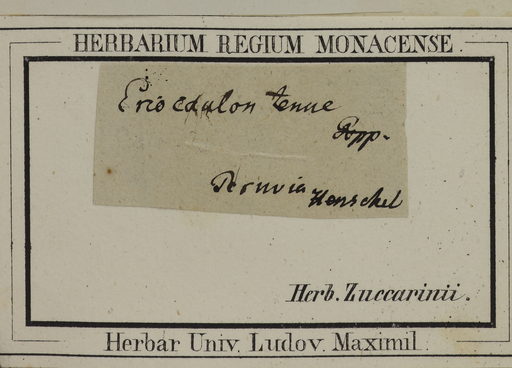 HERBARIUM REGIUM MONACENSE.
Eriocaulon tenue
Ppp.
Peruvia
Henschel
Herb. Zuccarinii.
Herbar Univ. Ludov. Maximil.